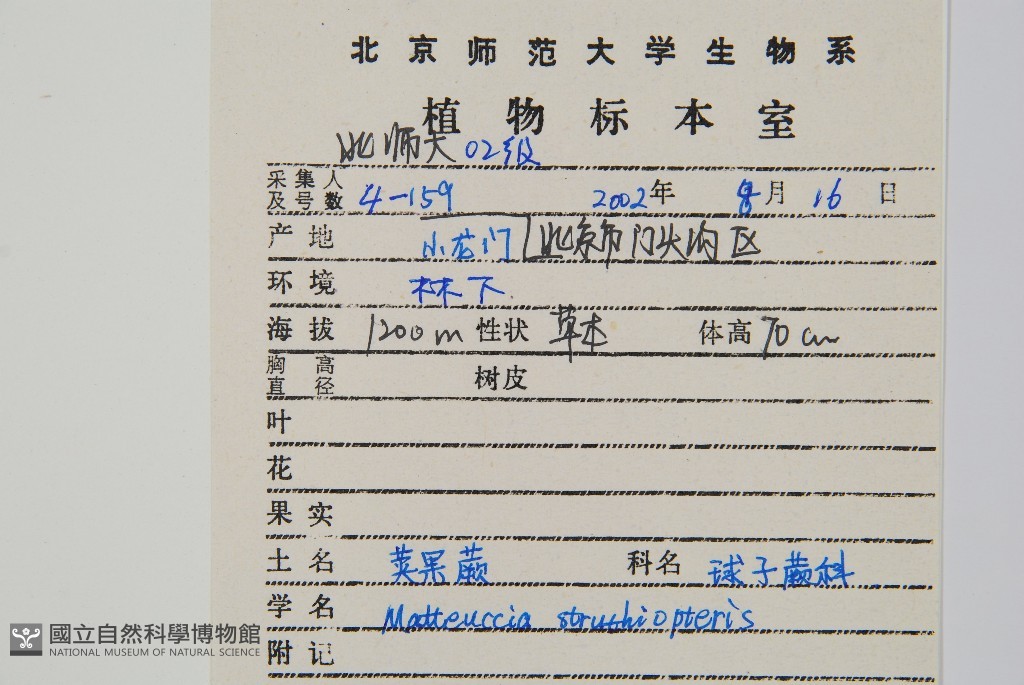 北京师范大学生物系
植物标本室
北师大 02级
采集人及号数 4-159 2002年 8月 16日
产地 小龙门 北京市门头沟区
环境 林下
海拔 1200m 性状 草本 体高 70cm
胸高直径 树皮
叶
花
果实
土名 荚果蕨 科名 球子蕨科
学名 Matteuccia struthiopteris
附记
國立自然科學博物館
NATIONAL MUSEUM OF NATURAL SCIENCE